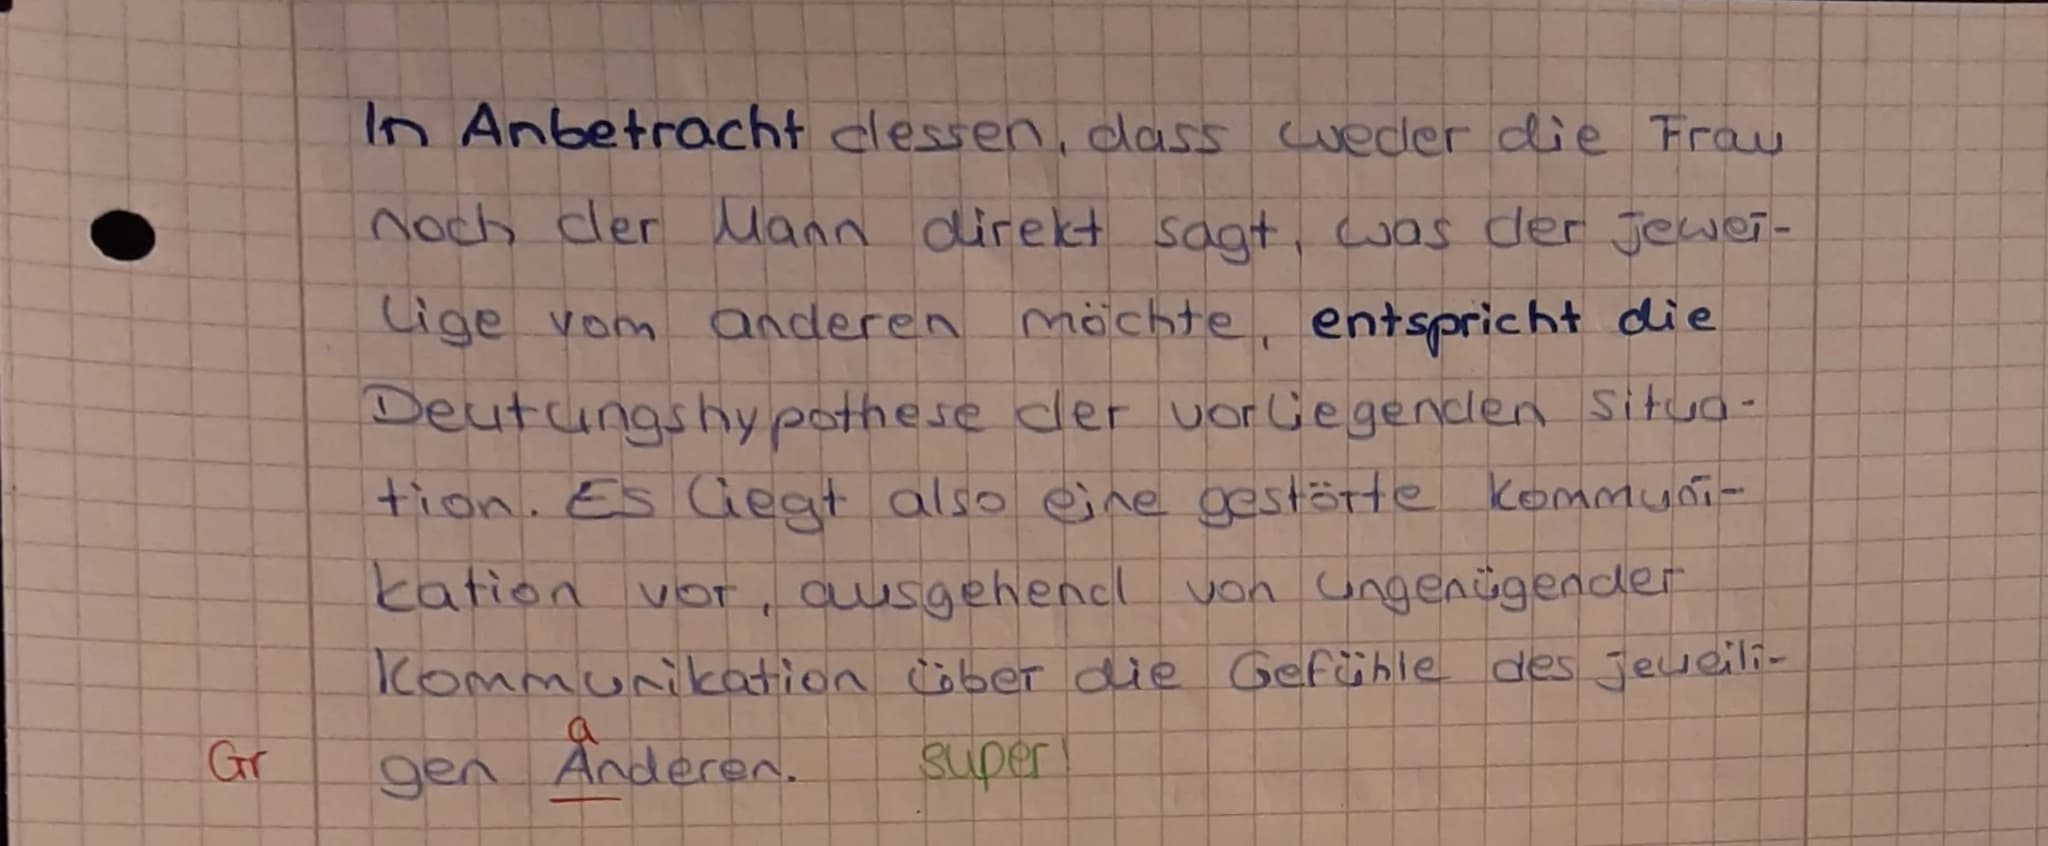 In Anbetracht dessen, dass weder die Frau
noch der Mann direkt sagt, was der jewei-
lige vom anderen möchte, entspricht die
Deutungshypothese der vorliegenden Situa-
tion. Es liegt also eine gestörte Kommuni-
kation vor, ausgehend von ungenügender
Kommunikation über die Gefühle des jeweili-
a
Gr gen Anderen. super!